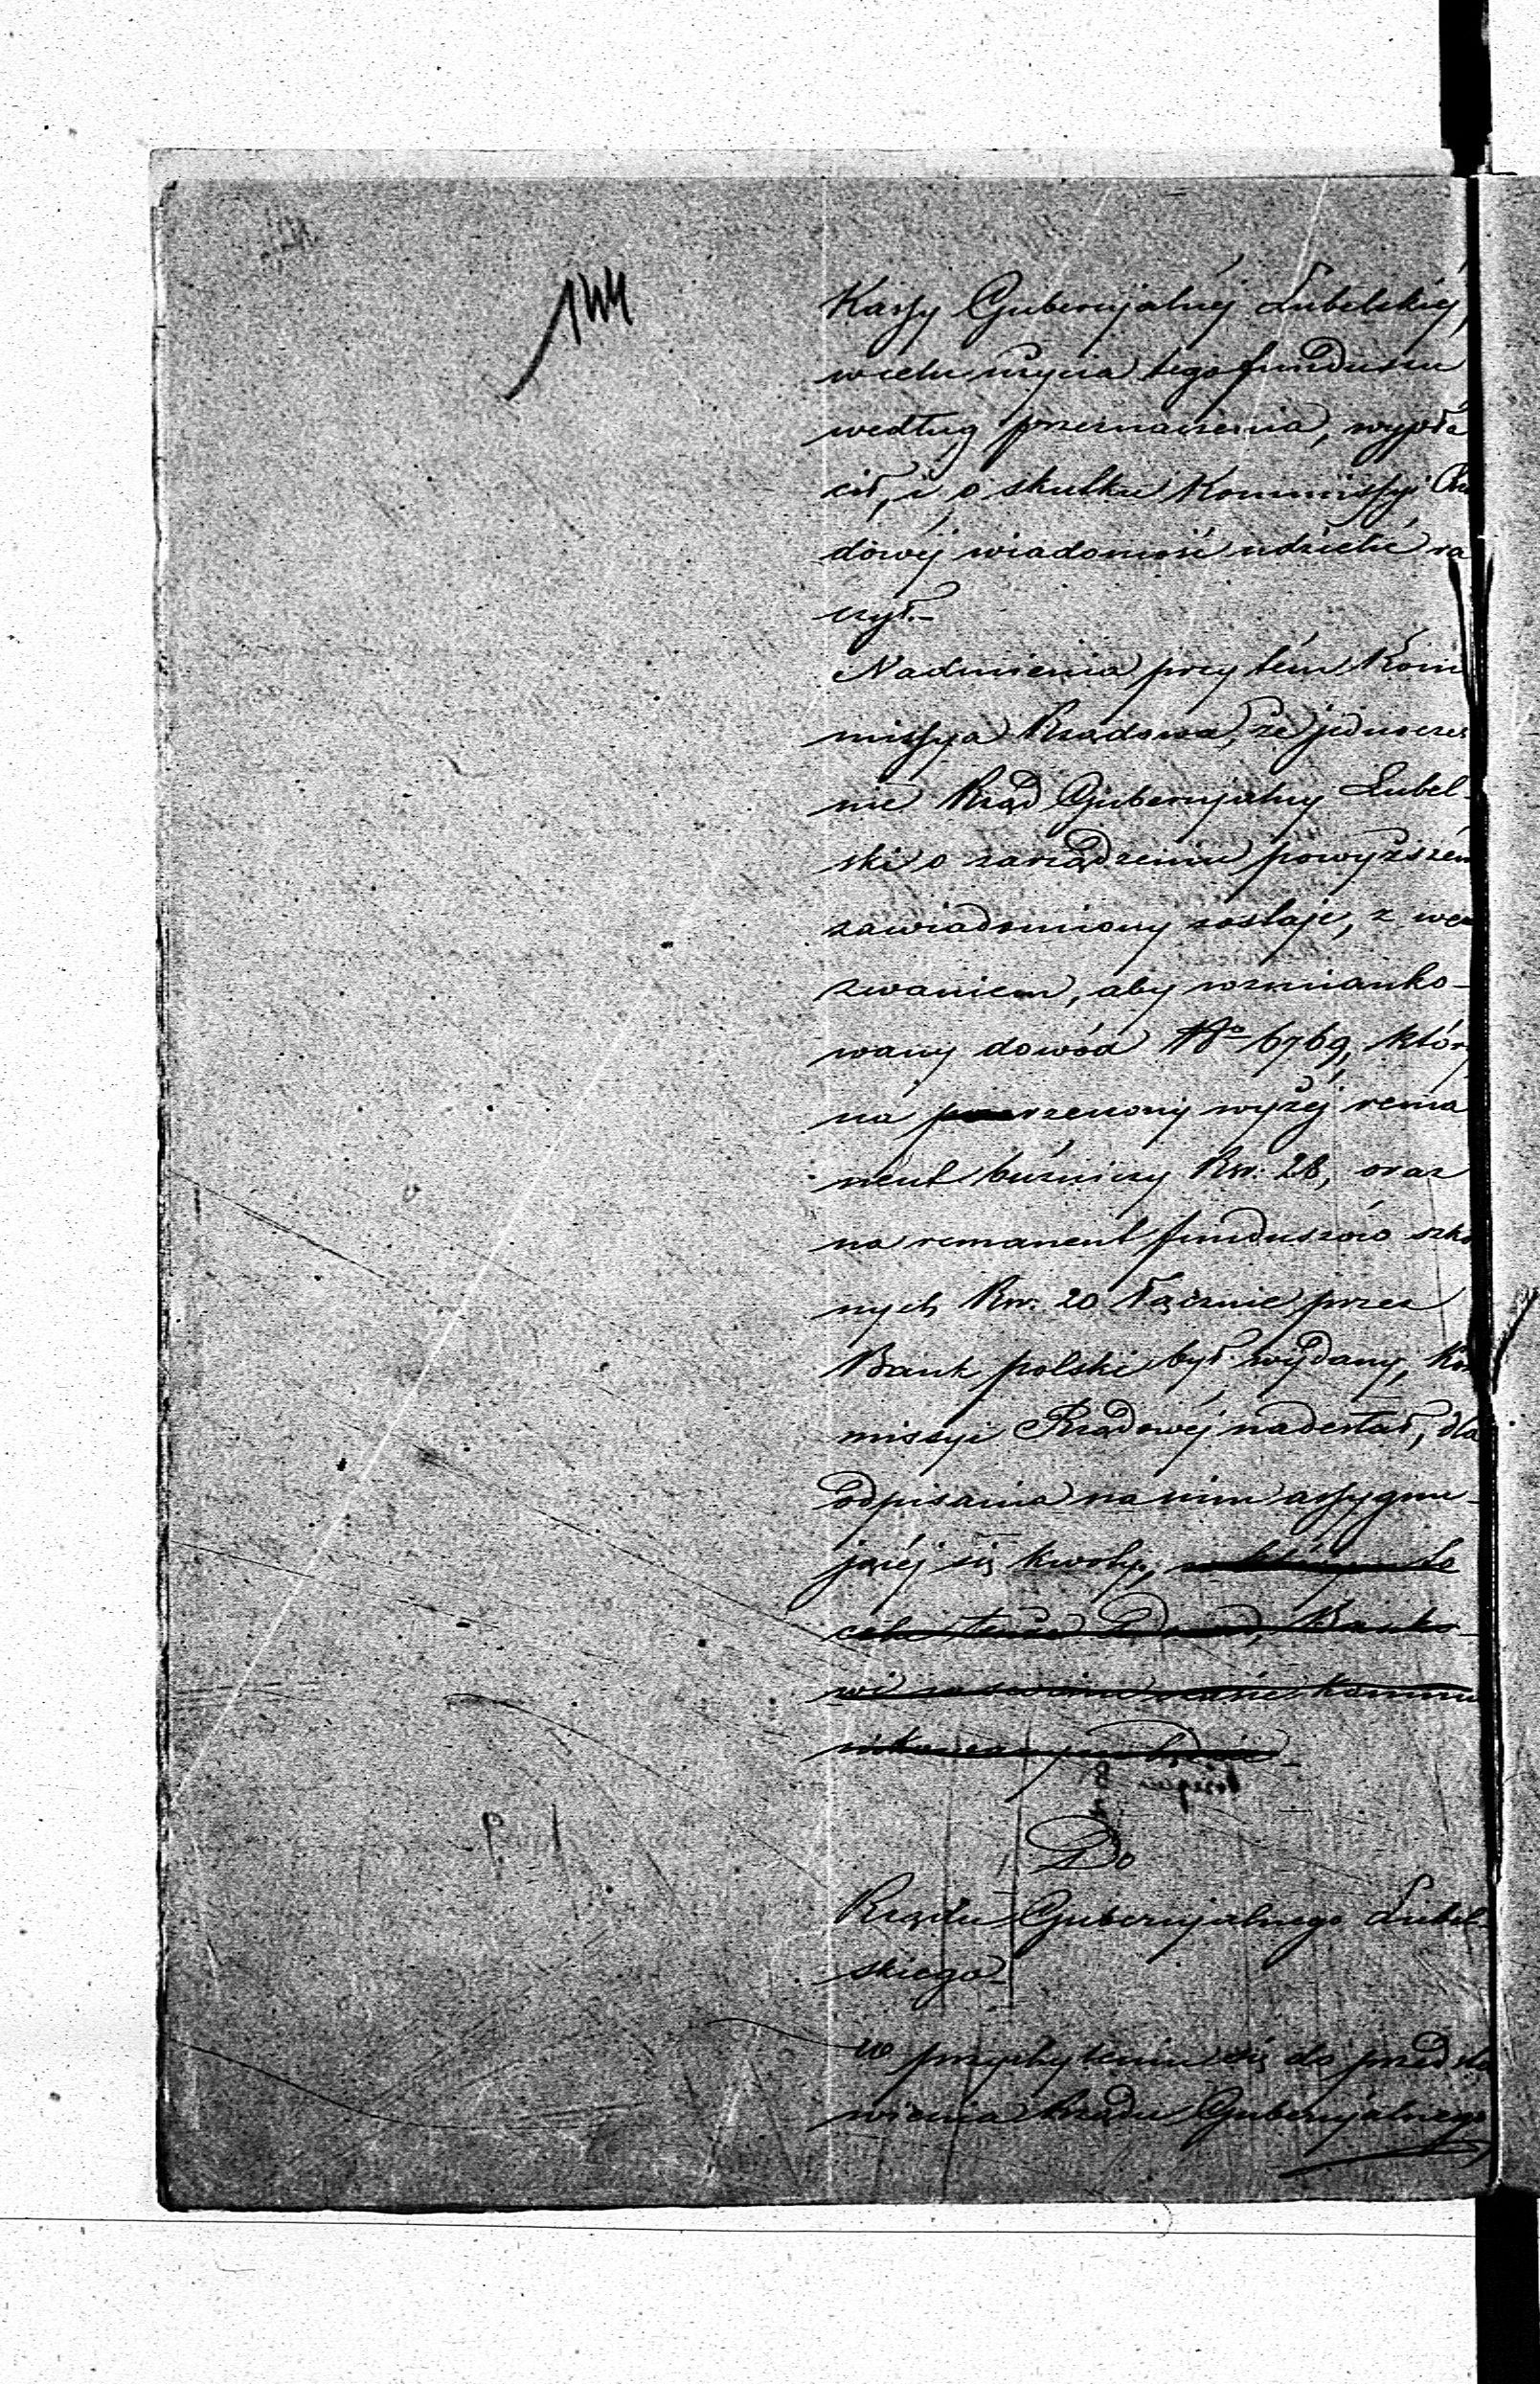 144
Kassy Gubernijalnéj Lubelskiéj,
w celu użycia tego funduszu
według przeznaczenia, wypła
cił, i o skutku Kommissyi Rzą
dowéj wiadomość udzielić ra
czył.—
Nadmienia przy tém Kom
missya Rządowa, że jednocześ
nie Rząd Gubernijalny Lubel-
ski o zarządzeniu powyższém
zawiadomiony zostaje, z we
zwaniem, aby wzmianko-
wany dowód No 6769, który
na rzeczony wyżéj rema
nent bużniczy Rsr. 28, oraz
na remanent funduszów szkol
nych Rsr. 20 łącznie przez
Bank polski był wydany, Kom
missyi Rządowéj nadesłał, dla
odpisania na nim assygnu-
jącéj się kwoty,
celu tenże Dowód, Banko-
wi w swoim czasie kommu
nikowan
Do
Rządu Gubernijalnego Lubel-
skiego
W przychyleniu się do przedsta
wienia Rządu Gubernijalnego